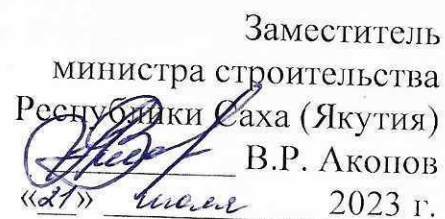 Заместитель
министра строительства
Республики Саха (Якутия)
В.Р. Акопов
«21» июля 2023 г.